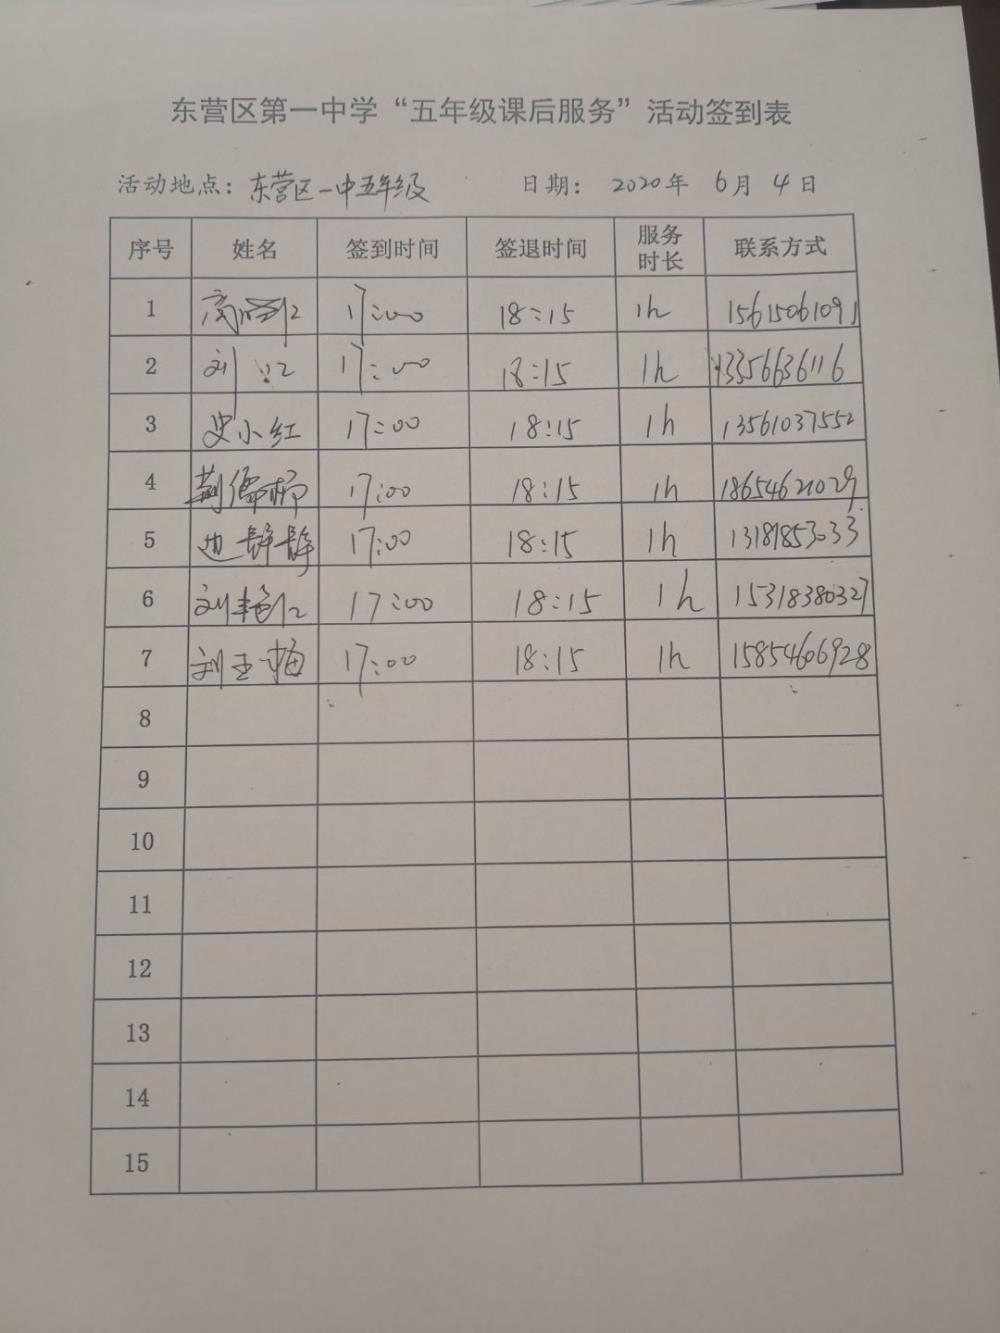 东营区第一中学“五年级课后服务”活动签到表
活动地点：东营区一中五年级 日期： 2020年 6月 4日
序号 姓名 签到时间 签退时间 服务时长 联系方式
1 17:00 18:15 1h 15615061091
2 刘 17:00 18:15 1h 13356636116
3 史小红 17:00 18:15 1h 13561037552
4 17:00 18:15 1h 18654621029
5 边静静 17:00 18:15 1h 13181853033
6 刘艳红 17:00 18:15 1h 15318380327
7 刘玉梅 17:00 18:15 1h 15854606928
8
9
10
11
12
13
14
15